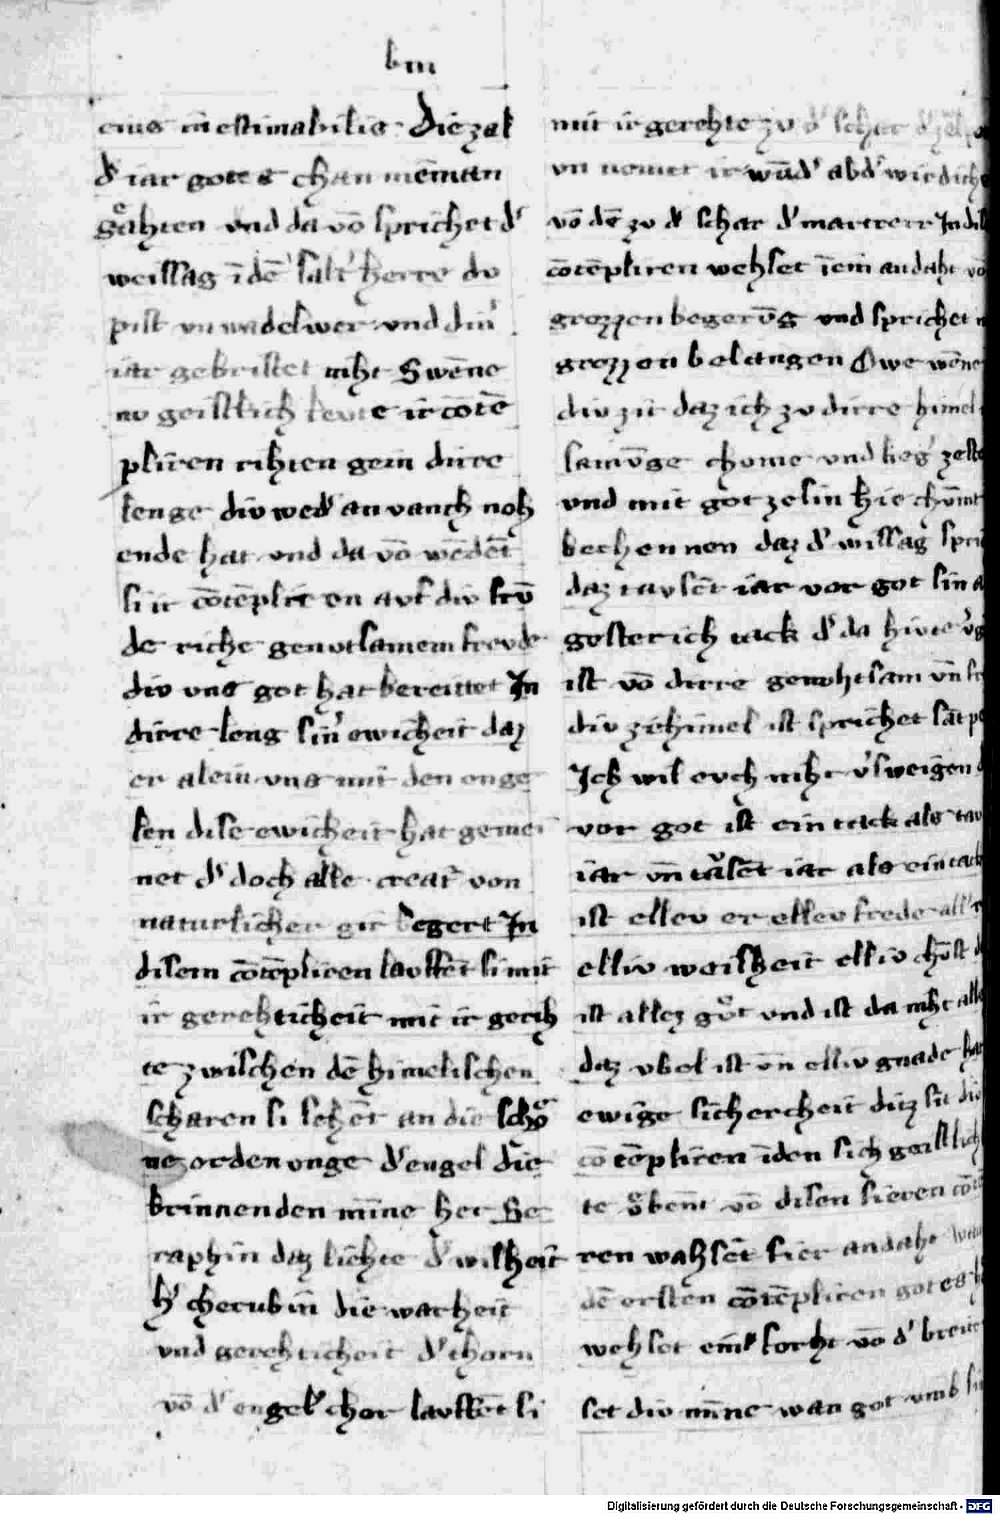 bm
eius inestimabilis. Die zal
d' iar gotes chan nieman
gahten vnd da vō sprichet d'
weissag ī dē salt' herre du
pist vn wadelwer vnd din'
iar gebristet niht Swēne
nv geistlich levte ir cōtē
pliren rihten gein dirre
lenge div wed' an vanch noh
ende hat vnd da vō wēdēt
si ir cōtēpliren auf div frv̄
de riche genvtsamen frevde
div vns got hat bereittet In
dirre leng sin' ewicheit daz
er alein vns mit den enge
len dise ewicheit hat gemei
net d' doch alle creat' von
naturlicher gir begert In
disem cōtēpliren lauffēt si mit
ir gerehticheit mit ir gerih
te zwischen dē himelischen
scharen si sehēt an die scho
nez ordenvnge d' engel die
brinnenden mīne her Se
raphin daz liehte d' wisheit
h' cherubin die warheit
vnd gerehticheit d' thorn
vō d' engel chor lauffēt si
mit ir gerehte zv d' schar d'
vn nemet ir wūd' ab d' wirdich
vō dē zv d' schar d' martrerr In dis
cōtēpliren wehset ī ein andaht vō
grozzen begerv̄g vnd sprichet
grozzen belangen Owe wēne
div zit daz ich zv dirre himel
samv̄ge chome vnd sieg'
vnd mit got ze sin hie chv̄mt
bechennen daz d' wissag spri
daz tausēt iar vor got sin a
gesterich tack d' da hivte
ist vō dirre genvhtsam vn̄
div ze himel ist sprichet sāt
Ich wil evch niht v'sweigen
vor got ist ein tack als tav
iar vn̄ tausēt iar als ein tack
ist ellev er ellev frede all
elliv weisheit elliv chv̄st
ist allez gut vnd ist da niht alle
daz vbel ist vn̄ elliv gnade
ewige sichercheit ditz sit div
cōtēpliren ī den sich geistlich
te vbent vō disen sieren
ren wahsēt fier andaht
dē ersten cōtēpliren gotes
wehset ein forht vō d' breit
set div mīne wan got vmb
Digitalisierung gefördert durch die Deutsche Forschungsgemeinschaft - DFG